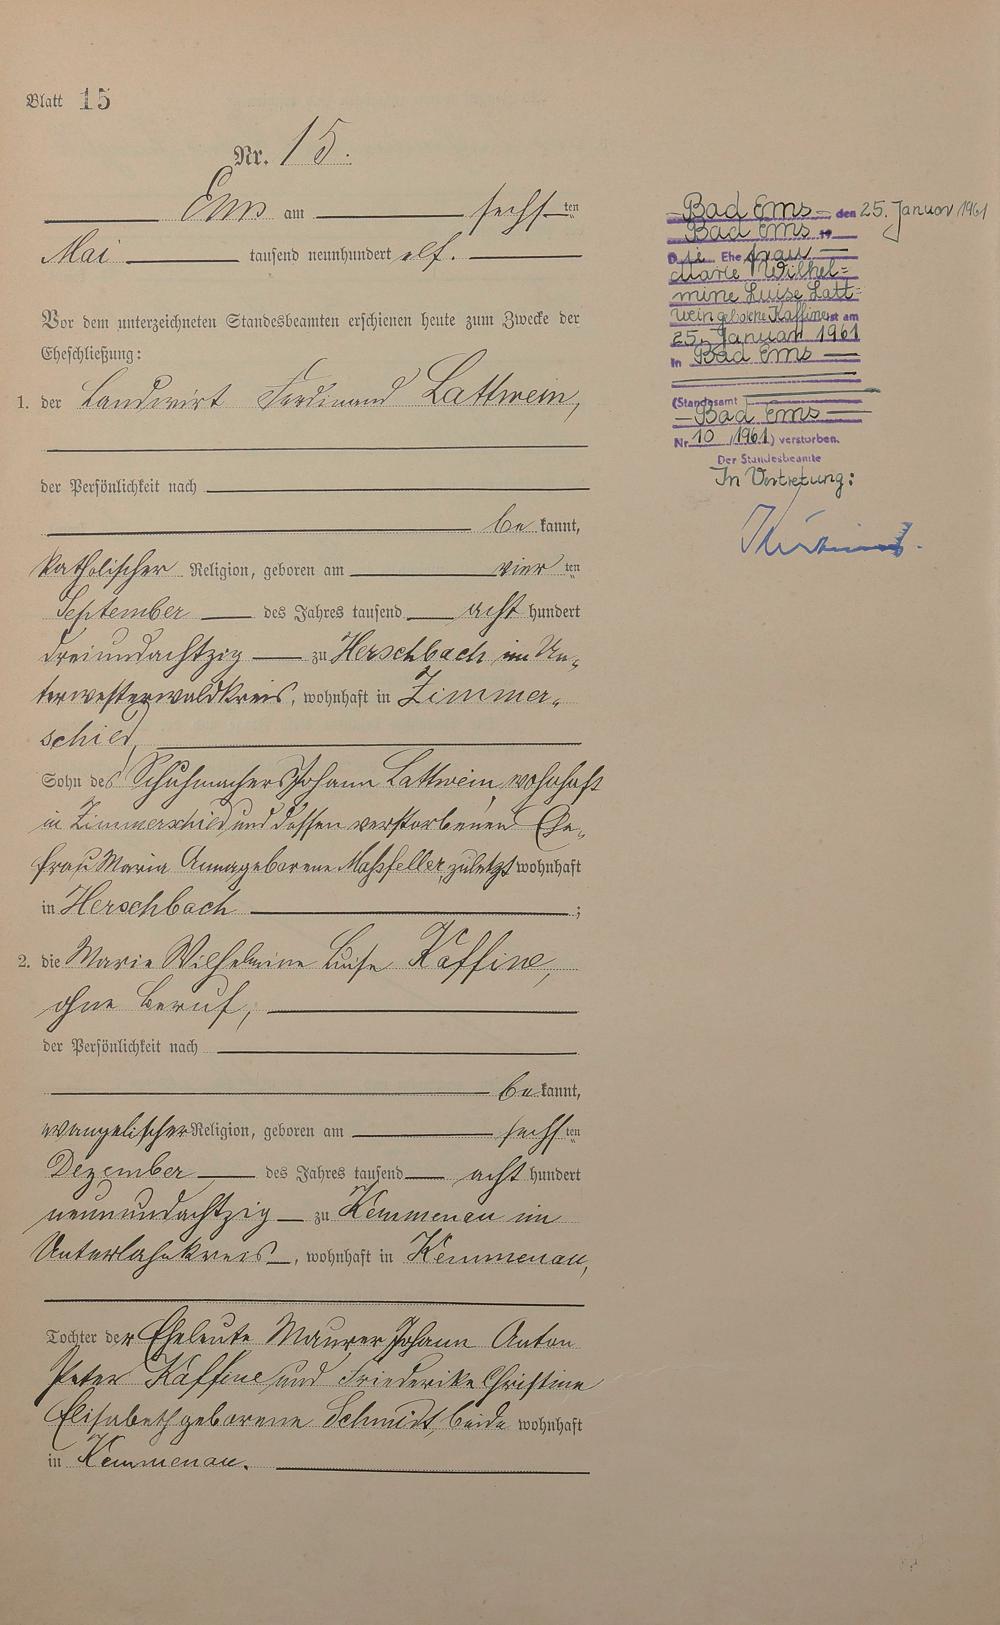 Blatt 15
Nr. 15.
Ems am sechsten
Mai tausend neunhundert elf.
Vor dem unterzeichneten Standesbeamten erschienen heute zum Zwecke der
Eheschließung:
1. der Landwirt Ferdinand Lattwein,
der Persönlichkeit nach
bekannt,
katholischer Religion, geboren am vierten
September des Jahres tausend acht hundert
dreiundachtzig zu Herschbach im Un-
terwesterwaldkreis, wohnhaft in Zimmer-
schied,
Sohn des Schuhmachers Johann Lattwein, wohnhaft
in Zimmerschied und dessen verstorbenen Ehe-
frau Maria Anna geborene Maßfeller, zuletzt wohnhaft
in Herschbach;
2. die Marie Wilhelmine Luise Kaffine,
ohne Beruf,
der Persönlichkeit nach
bekannt,
evangelischer Religion, geboren am sechsten
Dezember des Jahres tausend acht hundert
neunundachtzig zu Kemmenau im
Unterlahnkreis, wohnhaft in Kemmenau,
Tochter der Eheleute Maurer Johann Anton
Peter Kaffine und Friederike Christine
Elisabeth geborene Schmidt, beide wohnhaft
in Kemmenau.
Bad Ems den 25. Januar 1961
Bad Ems
Die Ehefrau
Marie Wilhel=
mine Luise Latt=
wein geborene Kaffine ist am
25. Januar 1961
in Bad Ems
(Standesamt
Bad Ems
Nr. 10 /1961) verstorben.
Der Standesbeamte
In Vertretung: